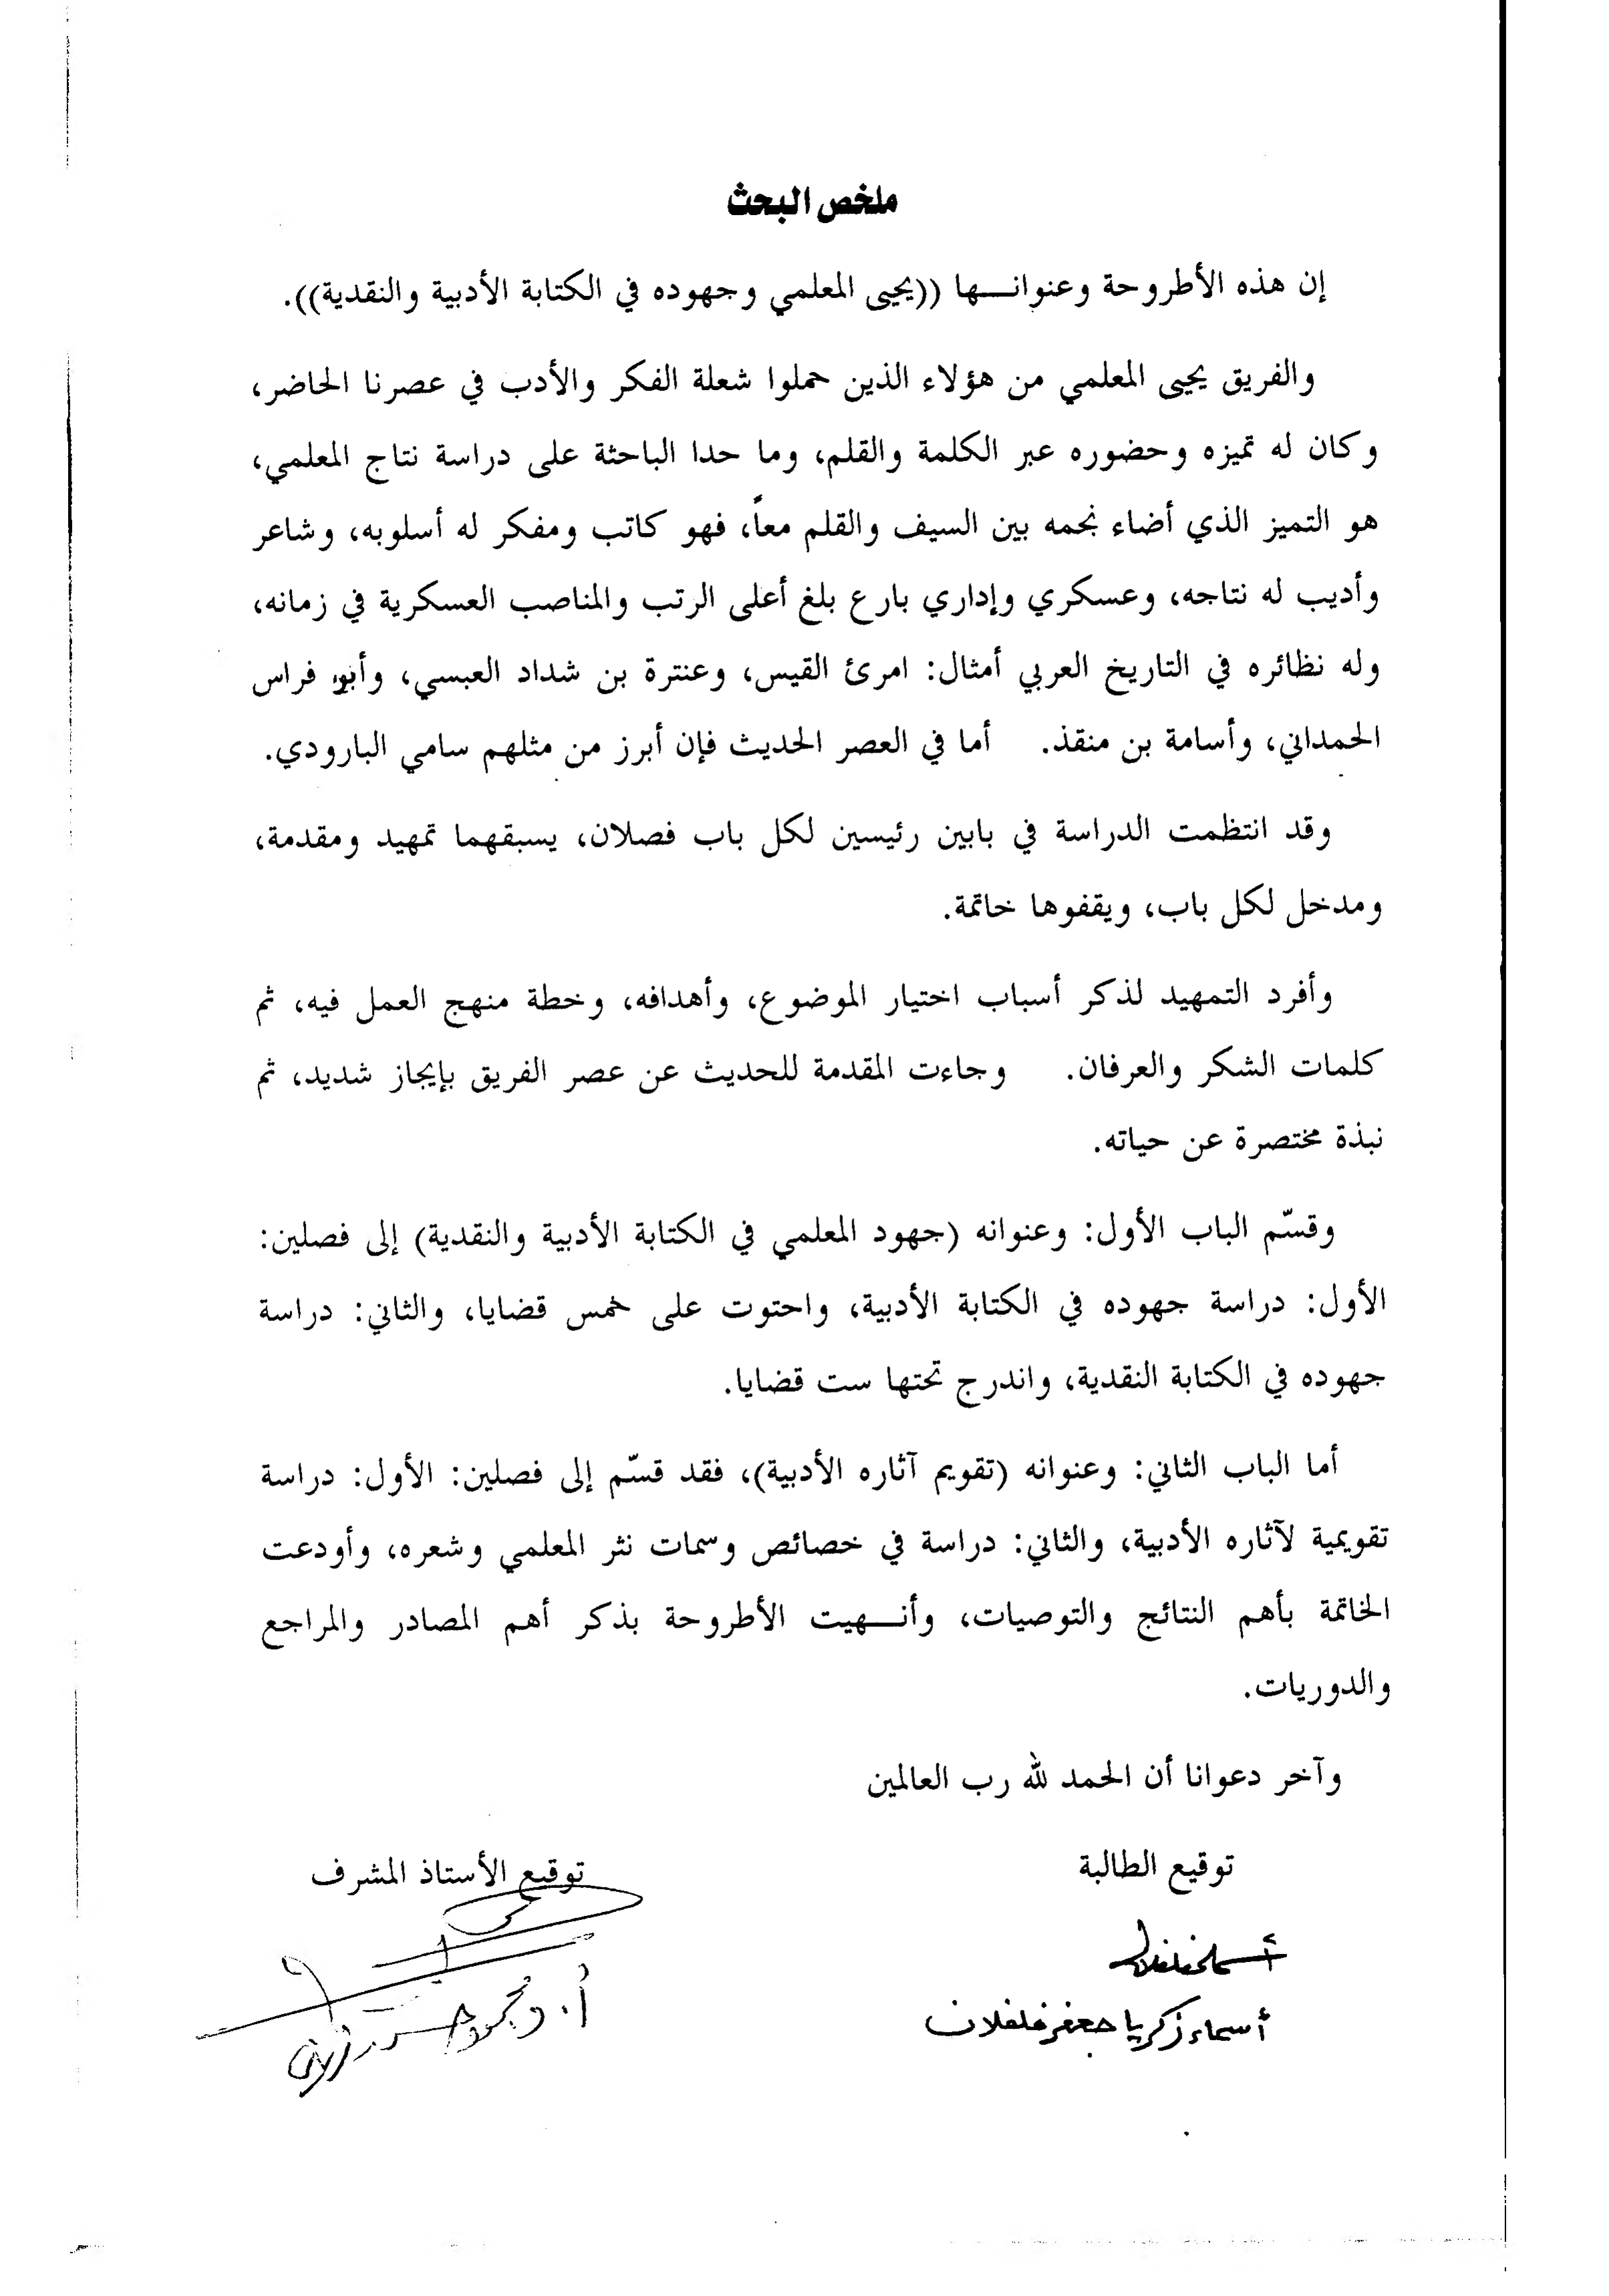 ملخص البحث
إن هذه الأطروحة وعنوانـــها ((يحيى المعلمي وجهوده في الكتابة الأدبية والنقدية)).
والفريق يحيى المعلمي من هؤلاء الذين حملوا شعلة الفكر والأدب في عصرنا الحاضر،
وكان له تميزه وحضوره عبر الكلمة والقلم، وما حدا الباحثة على دراسة نتاج المعلمي،
هو التميز الذي أضاء نجمه بين السيف والقلم معاً، فهو كاتب ومفكر له أسلوبه، وشاعر
وأديب له نتاجه، وعسكري وإداري بارع بلغ أعلى الرتب والمناصب العسكرية في زمانه،
وله نظائره في التاريخ العربي أمثال: امرئ القيس، وعنترة بن شداد العبسي، وأبو فراس
الحمداني، وأسامة بن منقذ. أما في العصر الحديث فإن أبرز من مثلهم سامي البارودي.
وقد انتظمت الدراسة في بابين رئيسين لكل باب فصلان، يسبقهما تمهيد ومقدمة،
ومدخل لكل باب، ويقفوها خاتمة.
وأفرد التمهيد لذكر أسباب اختيار الموضوع، وأهدافه، وخطة منهج العمل فيه، ثم
كلمات الشكر والعرفان. وجاءت المقدمة للحديث عن عصر الفريق بإيجاز شديد، ثم
نبذة مختصرة عن حياته.
وقسّم الباب الأول: وعنوانه (جهود المعلمي في الكتابة الأدبية والنقدية) إلى فصلين:
الأول: دراسة جهوده في الكتابة الأدبية، واحتوت على خمس قضايا، والثاني: دراسة
جهوده في الكتابة النقدية، واندرج تحتها ست قضايا.
أما الباب الثاني: وعنوانه (تقويم آثاره الأدبية)، فقد قسّم إلى فصلين: الأول: دراسة
تقويمية لآثاره الأدبية، والثاني: دراسة في خصائص وسمات نثر المعلمي وشعره، وأودعت
الخاتمة بأهم النتائج والتوصيات، وأنـــهيت الأطروحة بذكر أهم المصادر والمراجع
والدوريات.
وآخر دعوانا أن الحمد لله رب العالمين
توقيع الطالبة
توقيع الأستاذ المشرف
أسماء زكريا جعفر فلفلان